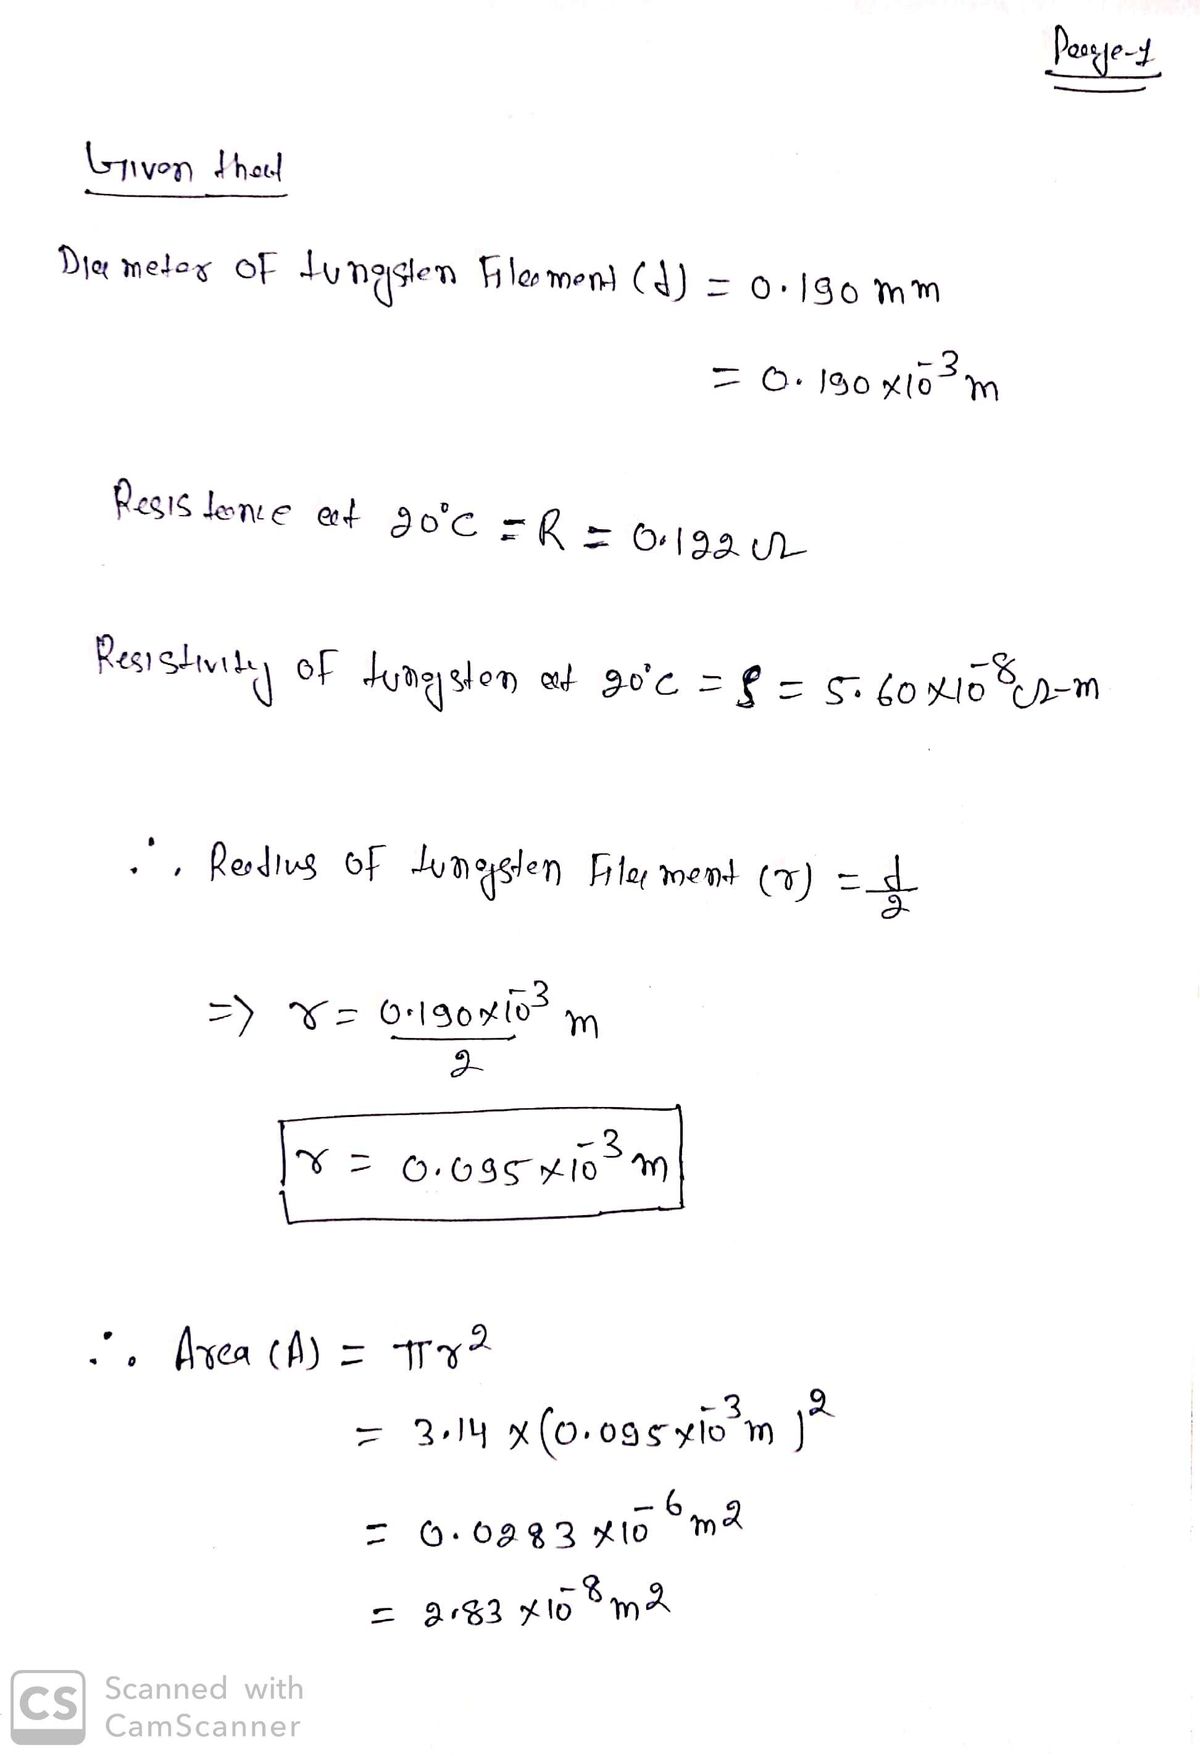 Page-1
Given that
Diameter of tungsten Filament (d) = 0.190 mm
= 0.190 × 10⁻³ m
Resistance at 20°C = R = 0.122 Ω
Resistivity of tungsten at 20°C = ρ = 5.60 × 10⁻⁸ Ω-m
∴ Radius of tungsten Filament (r) = d/2
=> r = 0.190 × 10⁻³/2 m
r = 0.095 × 10⁻³ m
∴ Area (A) = πr²
= 3.14 × (0.095 × 10⁻³ m)²
= 0.0283 × 10⁻⁶ m2
= 2.83 × 10⁻⁸ m2
CS Scanned with
CamScanner